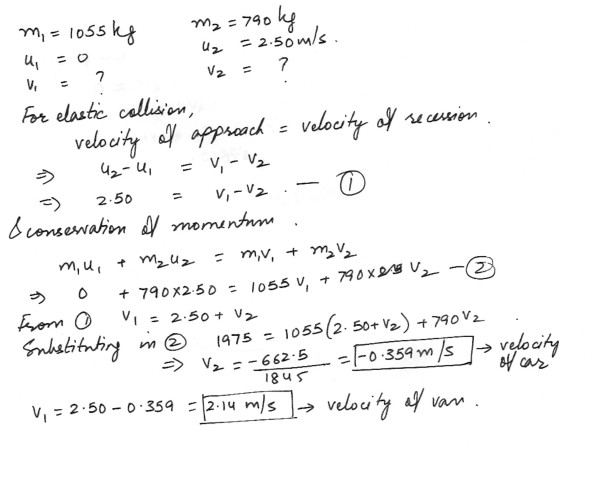 m₁ = 1055 kg m₂ = 790 kg
u₁ = 0 u₂ = 2.50 m/s.
v₁ = ? v₂ = ?
For elastic collision,
velocity of approach = velocity of recession.
⇒ u₂ - u₁ = v₁ - v₂
⇒ 2.50 = v₁ - v₂. — ①
& conservation of momentum.
m₁u₁ + m₂u₂ = m₁v₁ + m₂v₂
⇒ 0 + 790×2.50 = 1055 v₁ + 790× v₂ — ②
From ① v₁ = 2.50 + v₂
Substituting in ② 1975 = 1055(2.50+v₂) + 790v₂
⇒ v₂ = -662.5/1845 = -0.359 m/s → velocity of car
v₁ = 2.50 - 0.359 = 2.14 m/s → velocity of van.